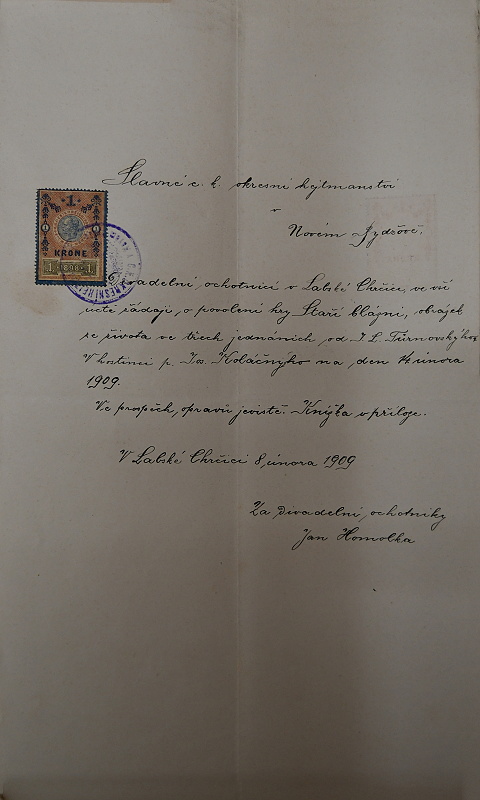 Slavné c. k. okresní hejtmanství
v
Novém Bydžově.
1
KRONE
1 1898 1
Divadelní ochotníci v Labské Chrčici, ve vší
uctě žádají, o povolení hry Staří blázni, obrázek
ze života ve třech jednáních, od J. L. Turnovského
V hostinci p. Jos. Koláčnyho na den 14 února
1909.
Ve prospěch, opravů jeviště. Knýžka v příloze.
V Labské Chrčici 8, února 1909
Za divadelní, ochotníky
Jan Homolka